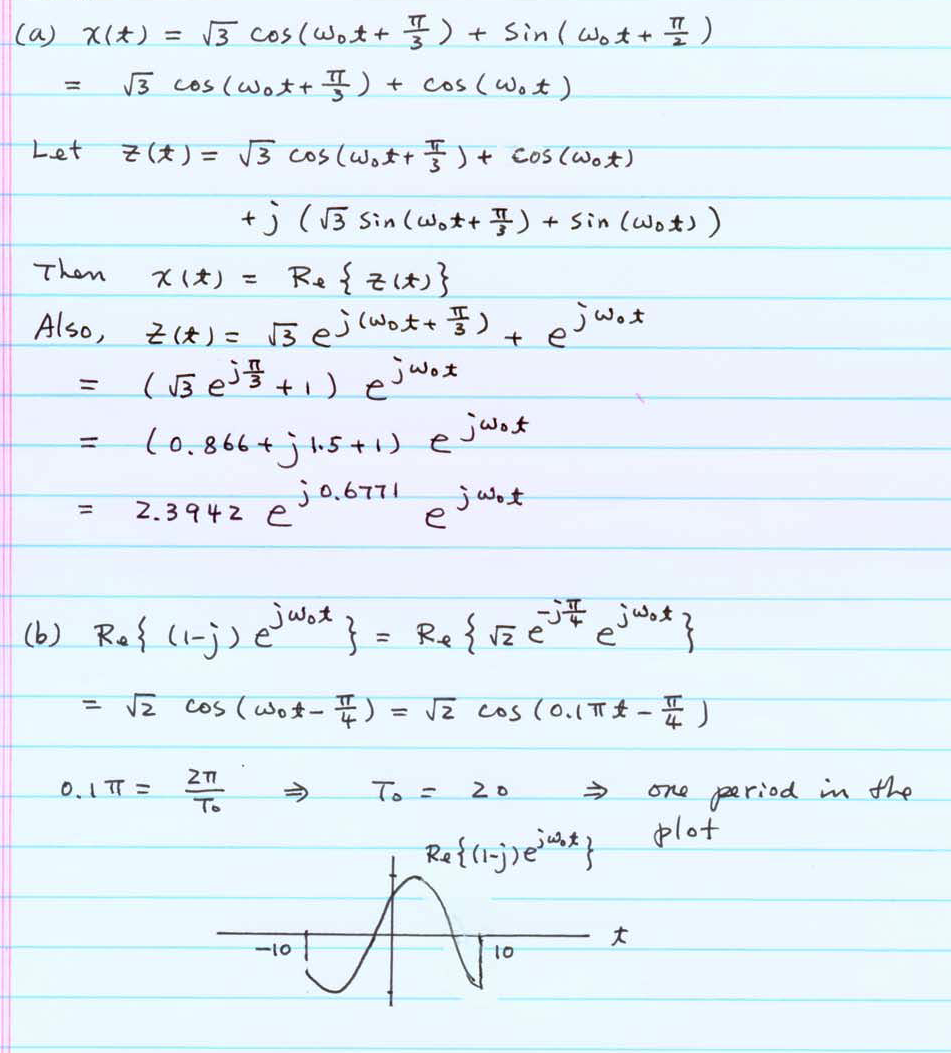 (a) x(t) = √3 cos(ω₀t + π/3) + sin(ω₀t + π/2)
= √3 cos(ω₀t + π/3) + cos(ω₀t)
Let z(t) = √3 cos(ω₀t + π/3) + cos(ω₀t)
+ j (√3 sin(ω₀t + π/3) + sin(ω₀t))
Then x(t) = Re{z(t)}
Also, z(t) = √3 e^{j(ω₀t + π/3)} + e^{jω₀t}
= (√3 e^{jπ/3} + 1) e^{jω₀t}
= (0.866 + j1.5 + 1) e^{jω₀t}
= 2.3942 e^{j0.6771} e^{jω₀t}
(b) Re{(1-j) e^{jω₀t}} = Re{√2 e^{-jπ/4} e^{jω₀t}}
= √2 cos(ω₀t - π/4) = √2 cos(0.1πt - π/4)
0.1π = 2π/T₀ ⇒ T₀ = 20 ⇒ one period in the
plot
Re{(1-j)e^{jω₀t}}
-10 10 t